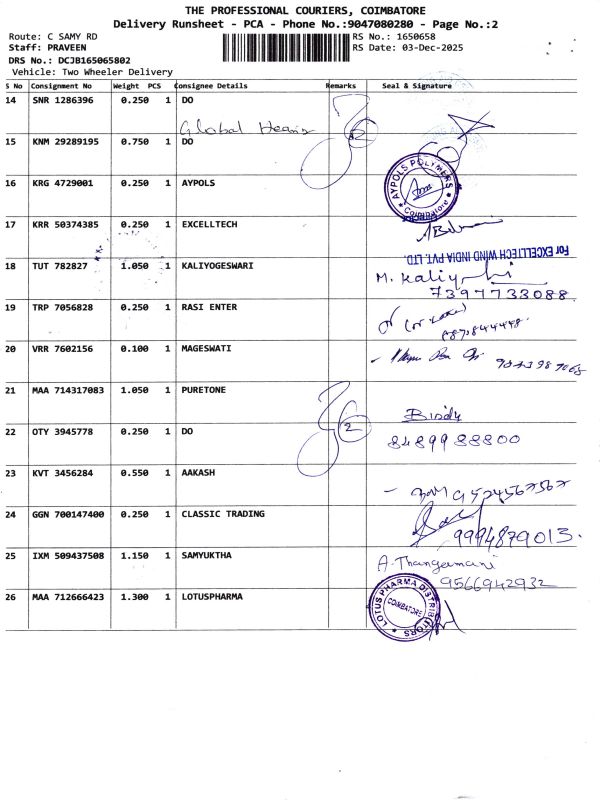 THE PROFESSIONAL COURIERS, COIMBATORE
Delivery Runsheet - PCA - Phone No.:9047080280 - Page No.:2
Route: C SAMY RD RS No.: 1650658
Staff: PRAVEEN RS Date: 03-Dec-2025
DRS No.: DCJB165065802
Vehicle: Two Wheeler Delivery
S No Consignment No Weight PCS Consignee Details Remarks Seal & Signature
14 SNR 1286396 0.250 1 DO
Global
15 KNM 29289195 0.750 1 DO
2
16 KRG 4729001 0.250 1 AYPOLS
AYPOLS POLYMERS
COIMBATORE
17 KRR 50374385 0.250 1 EXCELLTECH
For EXCELLTECH WIND INDIA PVT. LTD.
18 TUT 782827 1.050 1 KALIYOGESWARI
M. Kaliy
7397733088.
19 TRP 7056828 0.250 1 RASI ENTER
20 VRR 7602156 0.100 1 MAGESWATI
21 MAA 714317083 1.050 1 PURETONE
22 OTY 3945778 0.250 1 DO
2
8489988800
23 KVT 3456284 0.550 1 AAKASH
24 GGN 700147400 0.250 1 CLASSIC TRADING
9994879013.
25 IXM 509437508 1.150 1 SAMYUKTHA
A. Thangamani
9566942932
26 MAA 712666423 1.300 1 LOTUSPHARMA
LOTUS PHARMA DISTRIBUTORS
COIMBATORE